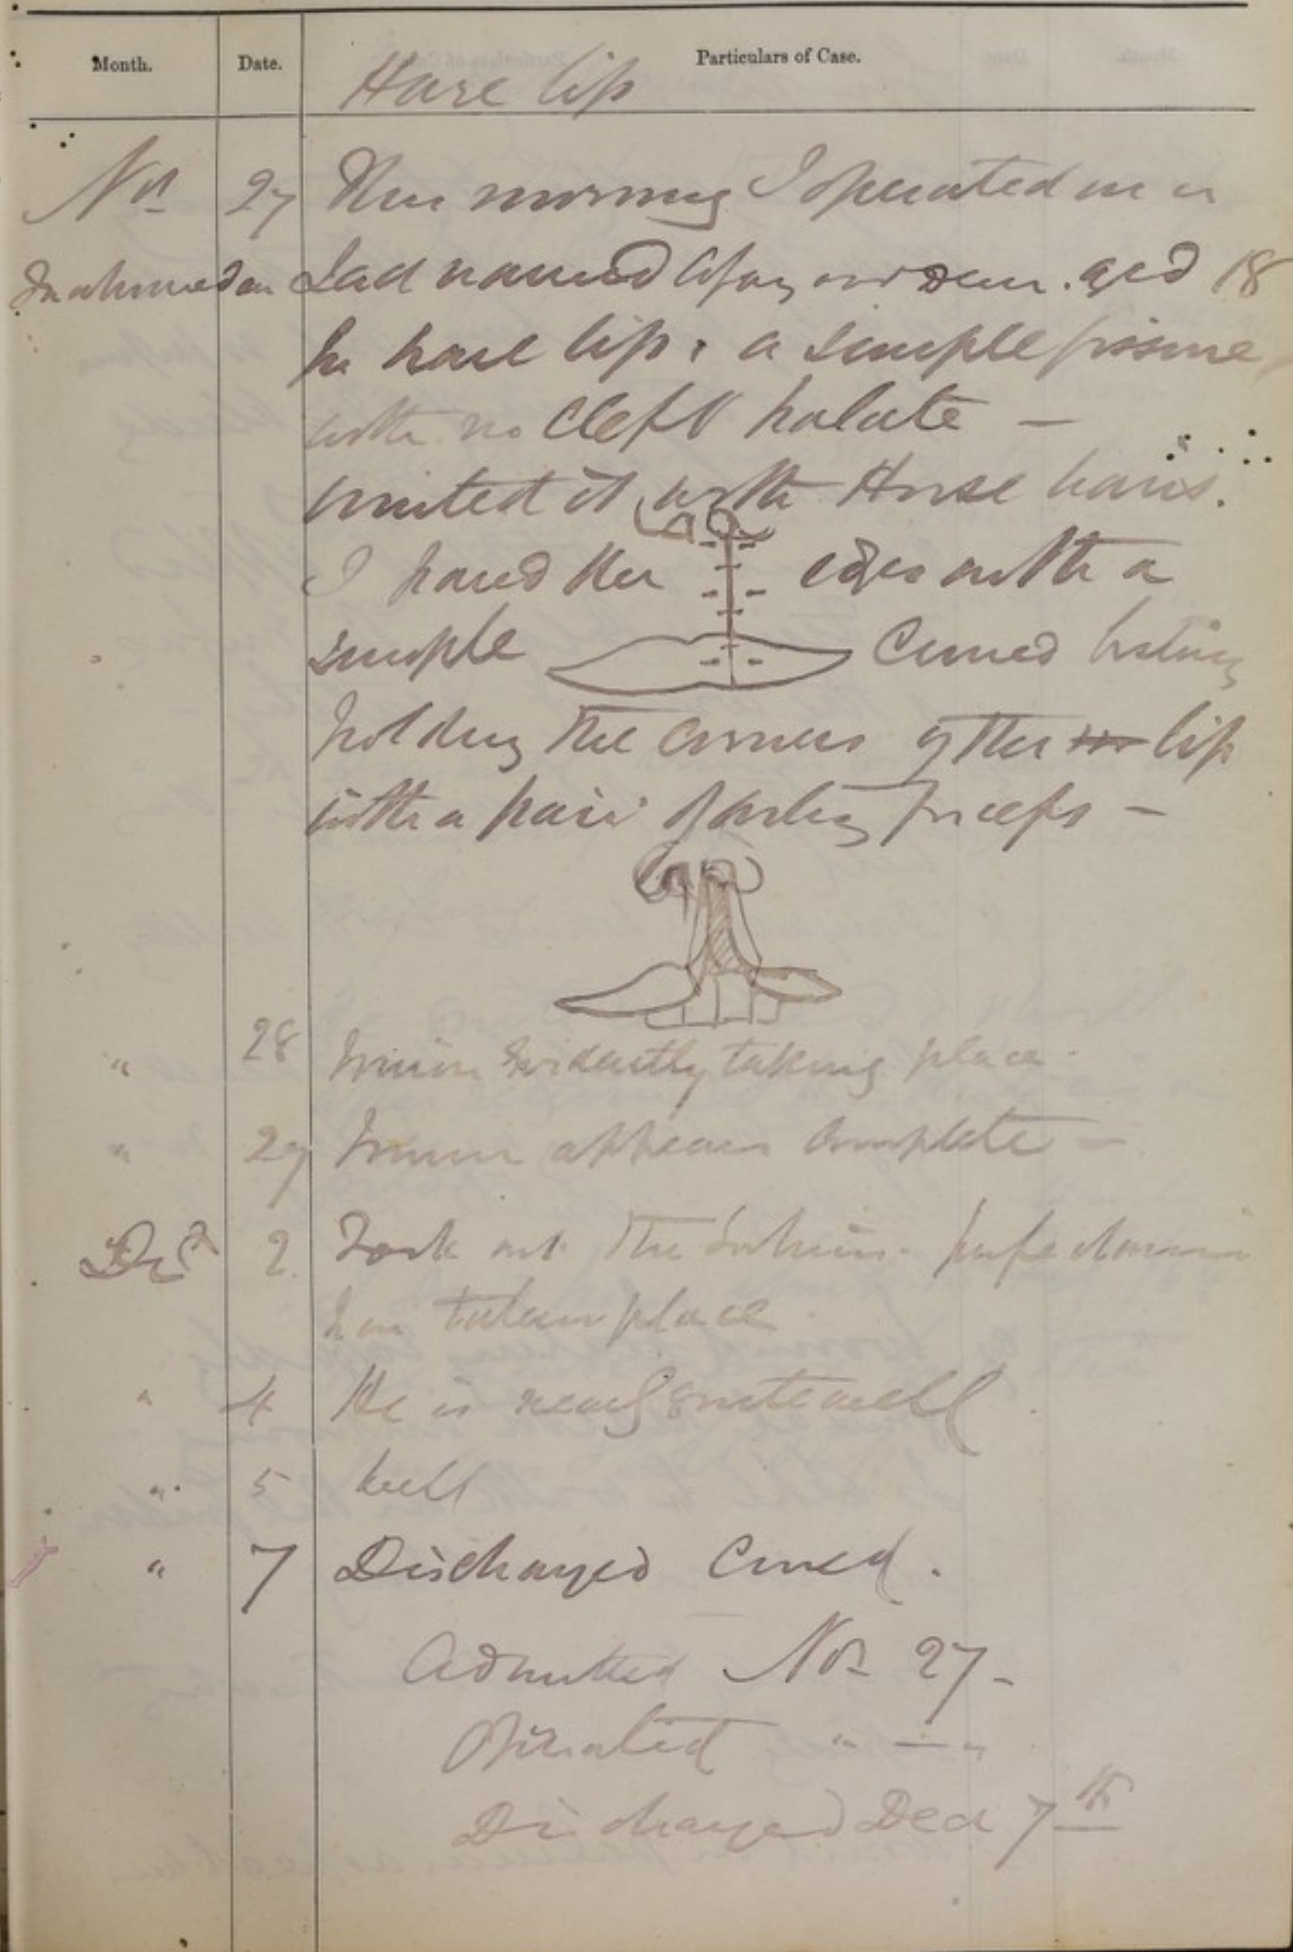 Month. Date. Particulars of Case.
Hare lip
Nov 27 This morning I operated on a
Lad named aged 18
for hare lip, a simple fissure
with no cleft palate —
united it with Horse hairs.
I pared the edges with a
simple Curved bistoury
holding the corners of the lip
with a pair of artery forceps —
" 28 Union evidently taking place.
" 29 Union appears complete —
Decr 2. Took out the sutures. perfect union
has taken place.
" 4 He is nearly quite well.
" 5 well
" 7 Discharged Cured.
Admitted Nov 27 —
Operated " — "
Discharged Dec 7th